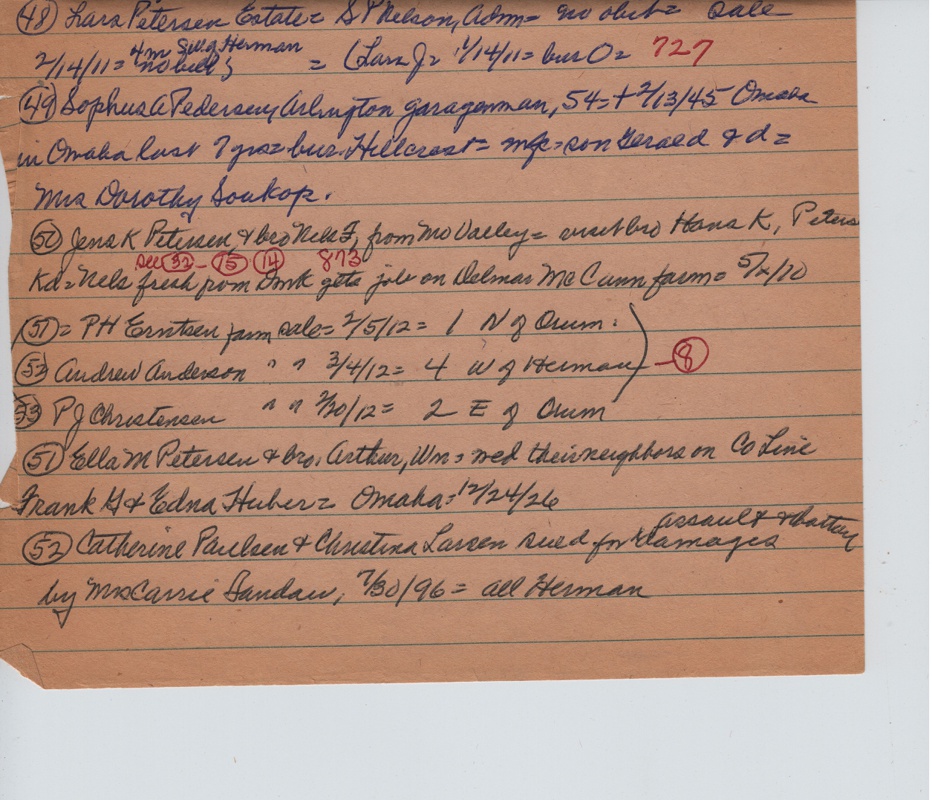 (48) Lars Petersen Estate = S P Nelson, Adm = no obit = Sale
2/14/11 = 4m SW of Herman no bill = (Lars J = 1/14/11 = bur O = 727
(49) Sophus A Pedersen, Arlington garageman, 54 = + 2/13/45 Omaha
in Omaha last 7 yrs = bur. Hillcrest = mfc = son Gerald & d =
Mrs Dorothy Soukop.
(50) Jens K Petersen, & bro Nels F, from Mo Valley = visit bro Hans K, Peters
see (32) - (15) (14) 873
Kd = Nels fresh from Dmk gets job on Delmar McCann farm = 5/x/10
(51) = PH Erntsen farm sale = 2/5/12 = 1 N of Orum.
(52) Andrew Anderson " " 3/4/12 = 4 W of Herman ) - (8)
(53) P J Christensen " " 2/20/12 = 2 E of Orum
(51) Ella M Petersen & bro. Arthur, Wn = wed their neighbors on Co Line
Frank H & Edna Huber = Omaha = 12/24/26
(52) Catherine Paulsen & Christina Larsen sued for damages assault & battery
by Mrs Carrie Sandaw, 7/30/96 = all Herman